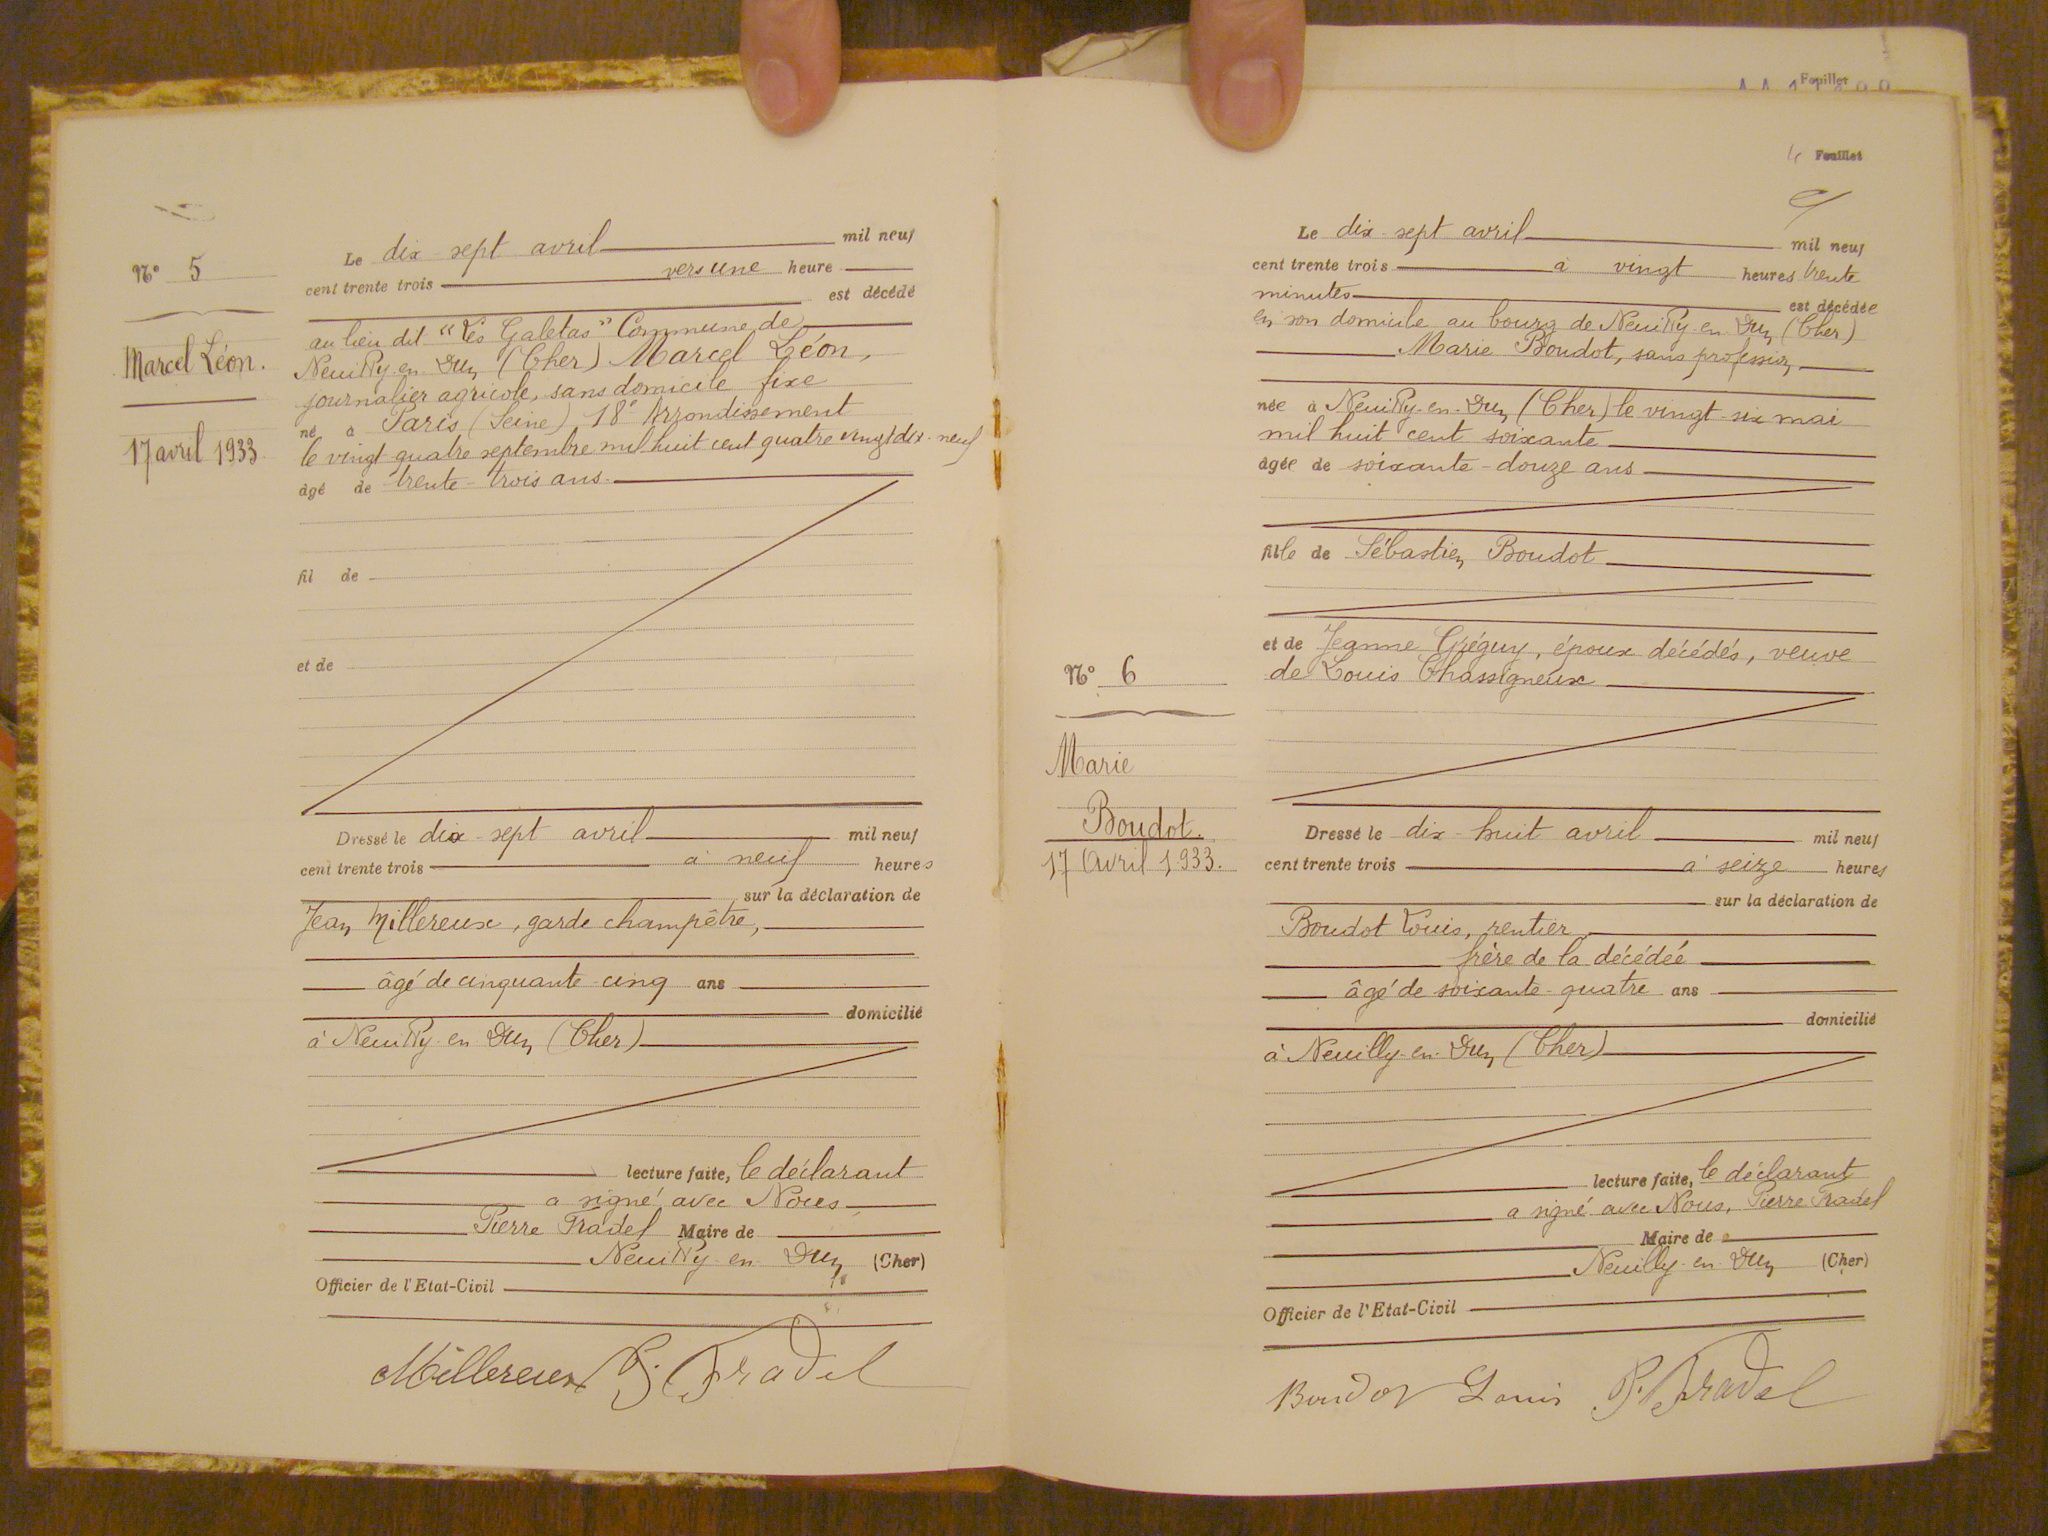 Nº 5
Marcel Léon.
17 avril 1933
Le dix-sept avril mil neuf
cent trente trois vers une heure
est décédé
au lieu dit "Les Galetas" Commune de
Neuilly-en-Dun (Cher) Marcel Léon,
journalier agricole, sans domicile fixe
né à Paris (Seine) 18e Arrondissement
le vingt quatre septembre mil huit cent quatre vingt dix-neuf
âgé de trente-trois ans.
fil de
et de
Dressé le dix-sept avril mil neuf
cent trente trois à neuf heures
sur la déclaration de
Jean Millereux, garde champêtre,
âgé de cinquante-cinq ans
domicilié
à Neuilly-en-Dun (Cher)
lecture faite, le déclarant
a signé avec Nous
Pierre Fradel Maire de
Neuilly-en-Dun (Cher)
Officier de l'Etat-Civil
Millereux P. Fradel
Feuillet
Feuillet
Nº 6
Marie
Boudot.
17 Avril 1933.
Le dix-sept avril mil neuf
cent trente trois à vingt heures trente
minutes est décédée
en son domicile au bourg de Neuilly-en-Dun (Cher)
Marie Boudot, sans profession,
née à Neuilly-en-Dun (Cher) le vingt-six mai
mil huit cent soixante
âgée de soixante-douze ans
fille de Sébastien Boudot
et de Jeanne Gréguy, époux décédés, veuve
de Louis Chassigneux
Dressé le dix-huit avril mil neuf
cent trente trois à seize heures
sur la déclaration de
Boudot Louis, rentier,
frère de la décédée
âgé de soixante-quatre ans
domicilié
à Neuilly-en-Dun (Cher)
lecture faite, le déclarant
a signé avec Nous, Pierre Fradel
Maire de
Neuilly-en-Dun (Cher)
Officier de l'Etat-Civil
Boudot Louis P. Fradel